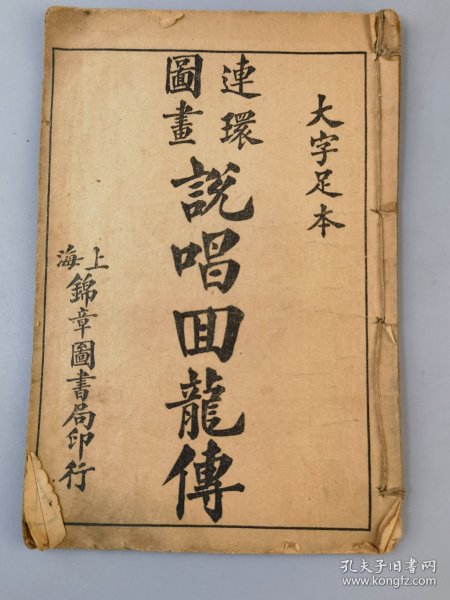 大字足本
連環
圖畫
說唱回龍傳
上海
錦章圖書局印行
孔夫子旧书网
www.kongfz.com